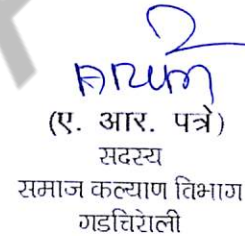 (ए. आर. पत्रे)
सदस्य
समाज कल्याण विभाग
गडचिरोली